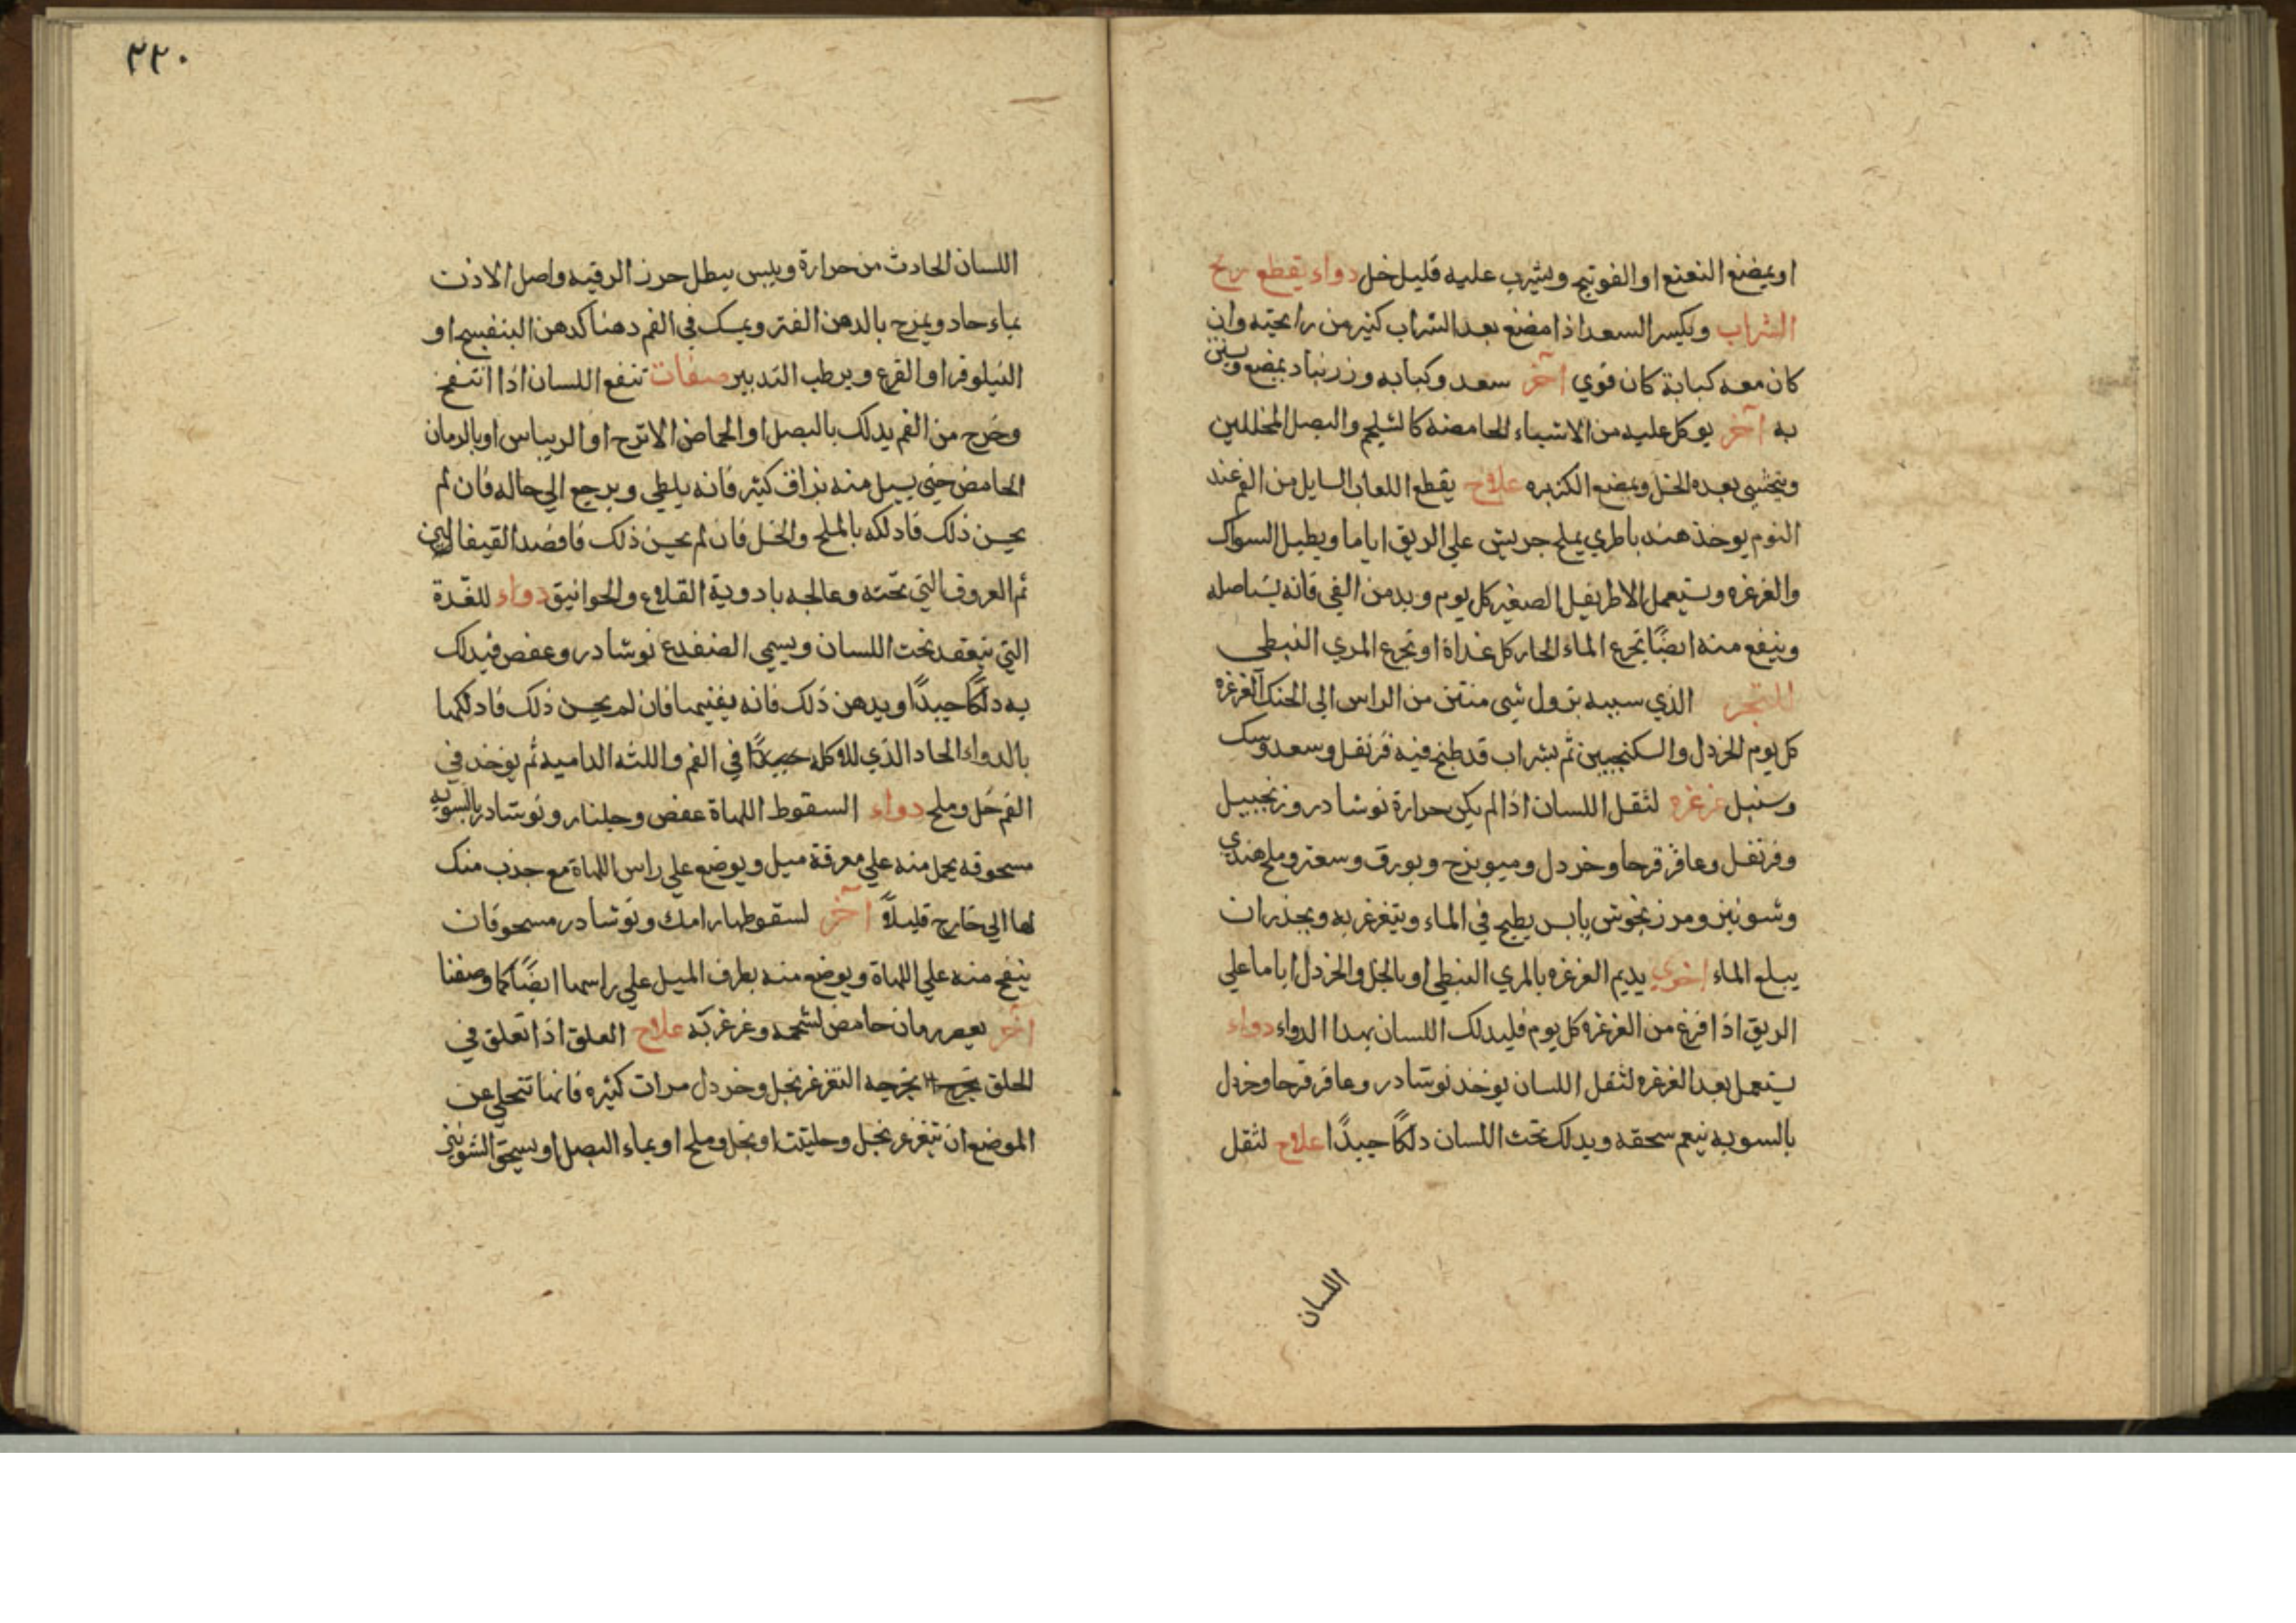 او يمضغ النعنع او الفوتنج ويشرب عليه قليل خل دواء يقطع ريح
الشراب ويكسر السعد اذا مضغ بعد الشراب كثير من رايحته وان
كان معه كبابة كان قوي آخر سعد وكبابه وزرنباد يمضغ
به آخر يوكل عليه من الاشياء الحامضه كالشلجم والبصل المخللين
ويتحسي بعده الخل ويمضغ الكزبره علاج يقطع اللعاب السايل من الفم عند
النوم يوخذ هندبا طري بملح جريش علي الريق اياما ويطيل السواك
والغرغره ويستعمل الاطريفل الصغير كل يوم ويدمن القي فانه يستاصله
وينفع منه ايضًا تجرع الماء الحار كل غداة او تجرع المري النبطي
للبخر الذي سببه نزول شي منتن من الراس الي الحنك الغرغره
كل يوم الخردل والسكنجبين ثم بشراب قد طبخ فيه قرنفل وسعد وسك
وسنبل غرغره لثقل اللسان اذا لم يكن حرارة نوشادر وزنجبيل
وقرنفل وعاقر قرحا وخردل وميويزج وبورق وسعتر وملح هندي
وشونيز ومرزنجوش يابس يطبخ في الماء ويتغرغر به ويحذر ان
يبلع الماء اخري يديم الغرغره بالمري النبطي او بالخل والخردل اياما علي
الريق اذا فرغ من الغرغره كل يوم فليدلك اللسان بهذا الدواء دواء
يستعمل بعد الغرغره لثقل اللسان يوخذ نوشادر وعاقر قرحا وخردل
بالسويه ينعم سحقه ويدلك تحت اللسان دلكًا جيدًا علاج لثقل
اللسان
٢٢٠
اللسان الحادث من حرارة ويبس يبطل حرز الرقبه واصل الاذن
بماء حاد ويمرح بالدهن الفتر ويمسك في الفم دهنا كدهن البنفسج او
النيلوفر او القرع ويرطب التدبير صفات تنفع اللسان اذا انتفخ
وخرج من الفم يدلك بالبصل او الحماض الاترج او الريباس او بالرمان
الحامض حتي يسيل منه بزاق كثير فانه يلطي ويرجع الي حاله فان لم
يحسن ذلك فادلكه بالملح والخل فان لم يحسن ذلك فافصد القيفال
ثم العروق التي تحته وعالجه بادوية القلاع والخوانيق دواء للغدة
التي تنعقد تحت اللسان ويسمي الضفدع نوشادر وعفص فيدلك
به دلكًا جيدًا ويدهن ذلك فانه يفنيها فان لم يحسن ذلك فادلكها
بالدواء الحاد الذي للاكله جيدًا في الفم واللثه الداميه ثم يوخذ في
الفم خل وملح دواء السقوط اللهاة عفص وجلنار ونوشادر بالسويه
مسحوقه يحمل منه علي مغرفة ميل ويوضع علي راس اللهاة مع جذب منك
لها الي خارج قليلاً آخر لسقوطها رامك ونوشادر مسحوقان
ينفخ منه علي اللهاة ويوضع منه بطرف الميل علي راسها ايضًا كما وصفنا
آخر يعصر رمان حامض بشحمه وغرغر به علاج العلق اذا تعلق في
الحلق يخرجه التغرغر بخل وخردل مرات كثيره فانها تتخلي عن
الموضع ان تتغرغر بخل وحلتيت او بخل وملح او بماء البصل او بسحق الشونيز